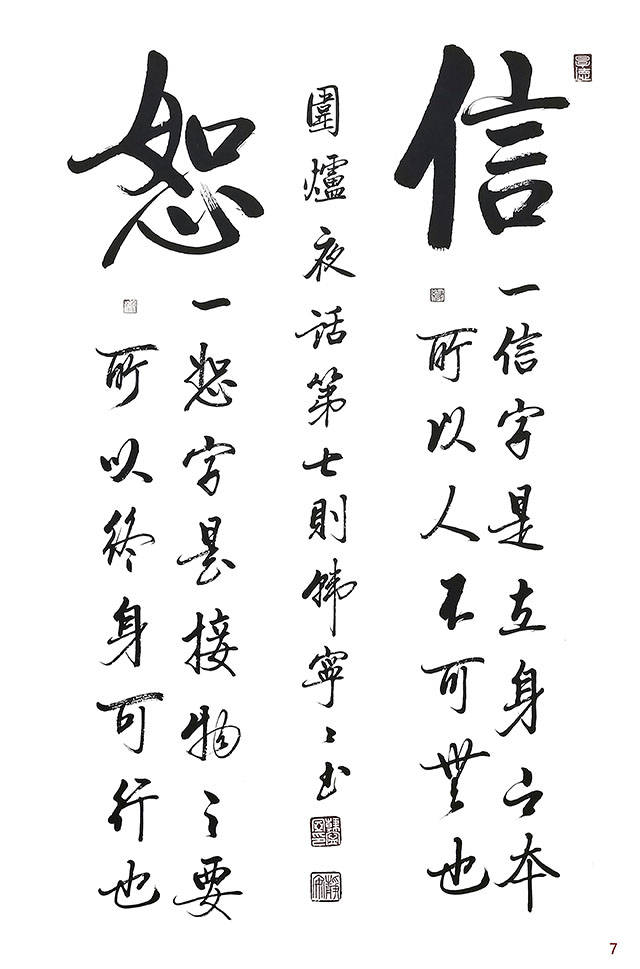 信
一信字是立身之本
所以人不可無也
圍爐夜話第七則韓寧〻書
恕
一恕字是接物之要
所以終身可行也
7